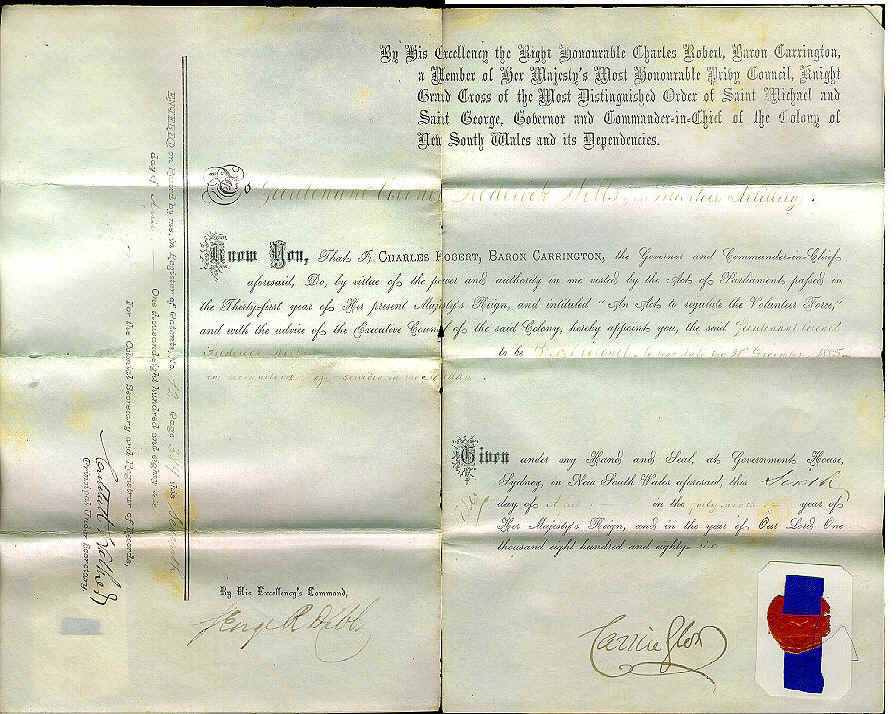 By His Excellency the Right Honourable Charles Robert, Baron Carrington,
a Member of Her Majesty's Most Honourable Privy Council, Knight
Grand Cross of the Most Distinguished Order of Saint Michael and
Saint George, Governor and Commander-in-Chief of the Colony of
New South Wales and its Dependencies.
To Lieutenant Colonel Frederick Wells, Artillery.
Know You, That I, CHARLES ROBERT, BARON CARRINGTON, the Governor and Commander-in-Chief
aforesaid, Do, by virtue of the power and authority in me vested by the Act of Parliament passed in
the Thirty-first year of Her present Majesty's Reign, and intituled "An Act to regulate the Volunteer Force,"
and with the advice of the Executive Council of the said Colony, hereby appoint you, the said Lieutenant Colonel
Frederick
to be Colonel December 1885
in of services in the
Given under my Hand and Seal, at Government House,
Sydney, in New South Wales aforesaid, this Sixth
day of in the year of
Her Majesty's Reign, and in the year of Our Lord One
thousand eight hundred and eighty six
By His Excellency's Command,
George R Dibbs
Carrington
ENTERED on Record by me, in Register of Patents, No. 12 Page this
day of One thousand eight hundred and eighty six
For the Colonial Secretary and Registrar of Records,
Principal Under Secretary.